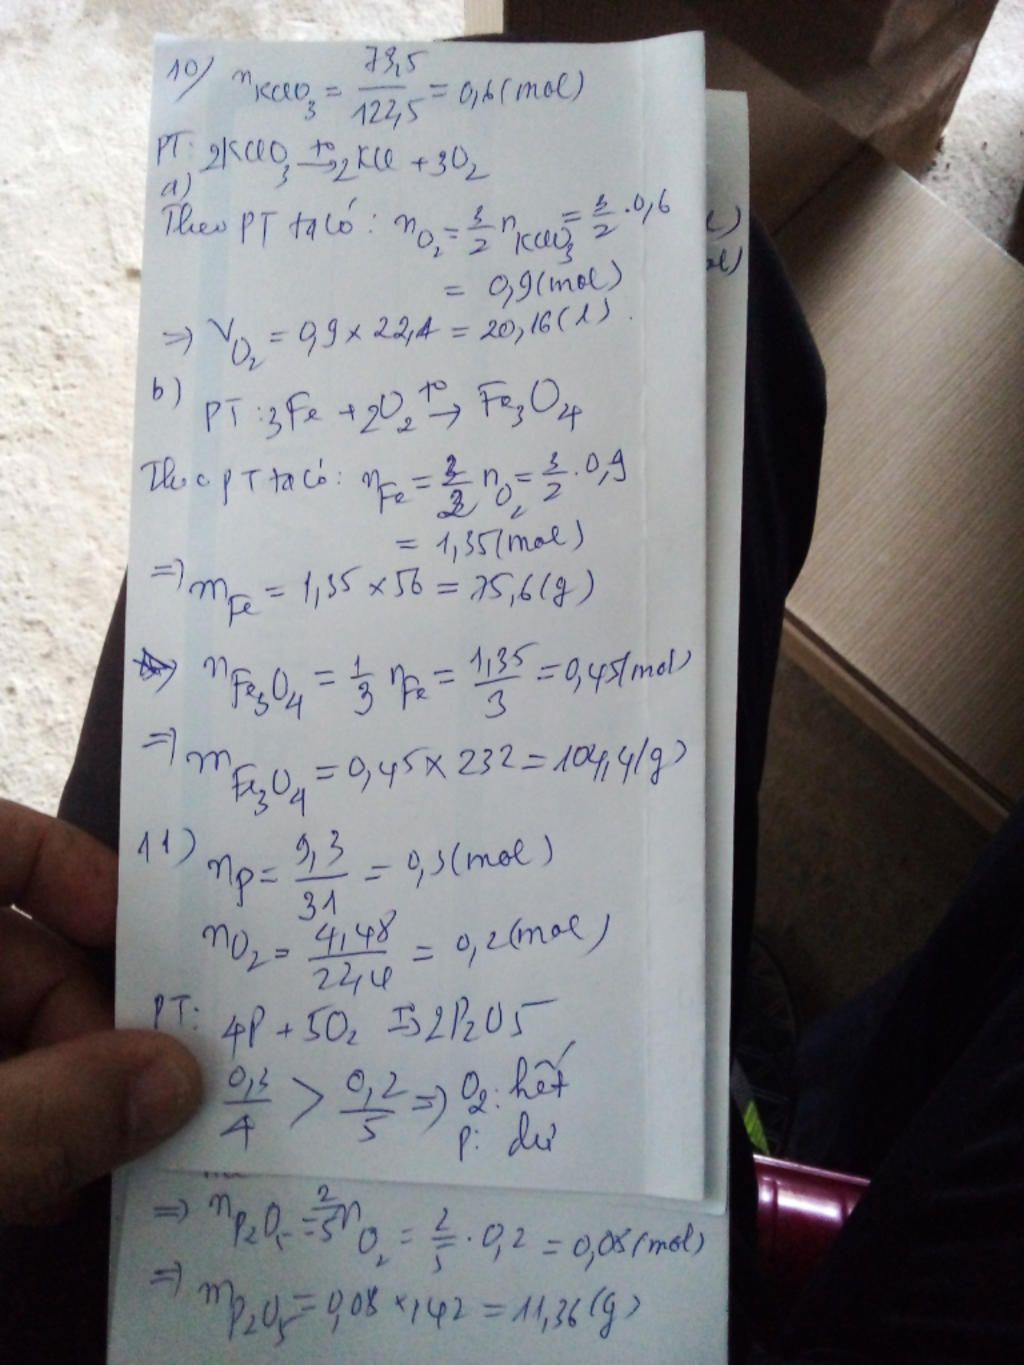 10) nKClO3 = 73,5/122,5 = 0,6 (mol)
PT: 2KClO3 t°→ 2KCl + 3O2
a)
Theo PT ta có: nO2 = 3/2 nKClO3 = 3/2 . 0,6
= 0,9 (mol)
=> VO2 = 0,9 x 22,4 = 20,16 (l).
b)
PT: 3Fe + 2O2 t°→ Fe3O4
Theo PT ta có: nFe = 3/2 nO2 = 3/2 . 0,9
= 1,35 (mol)
=> mFe = 1,35 x 56 = 75,6 (g)
nFe3O4 = 1/3 nFe = 1,35/3 = 0,45 (mol)
=> mFe3O4 = 0,45 x 232 = 104,4 (g)
11) nP = 9,3/31 = 0,3 (mol)
nO2 = 4,48/22,4 = 0,2 (mol)
PT: 4P + 5O2 t°→ 2P2O5
0,3/4 > 0,2/5 => O2: hết
P: dư
=> nP2O5 = 2/5 nO2 = 2/5 . 0,2 = 0,08 (mol)
=> mP2O5 = 0,08 x 142 = 11,36 (g)